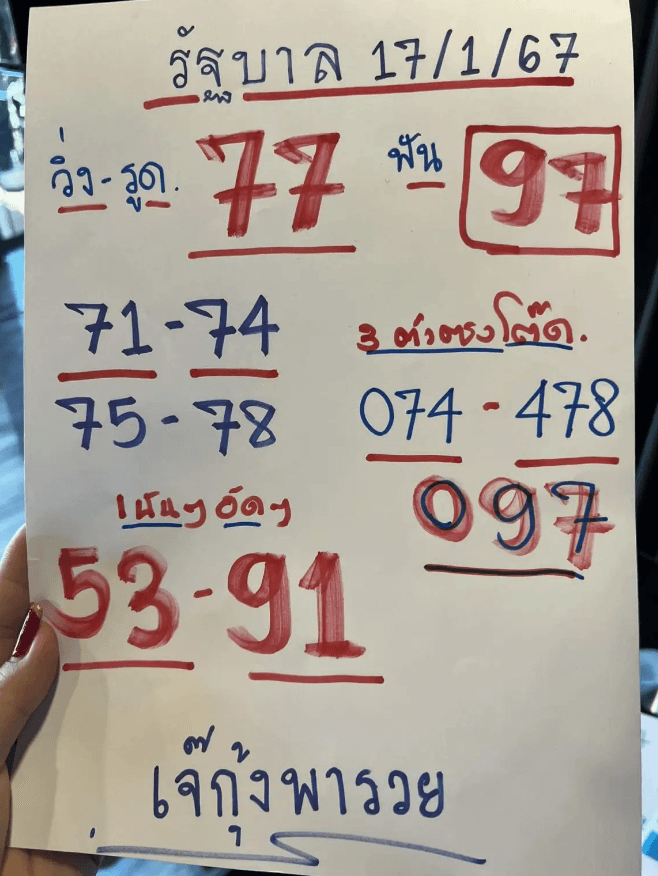 รัฐบาล 17/1/67
วิ่ง-รูด. 77 ฟัน 97
71-74
75-78
3 ตัวตรงโต๊ด.
074-478
097
เน้นๆ อัดๆ
53-91
เจ๊กุ้งพารวย